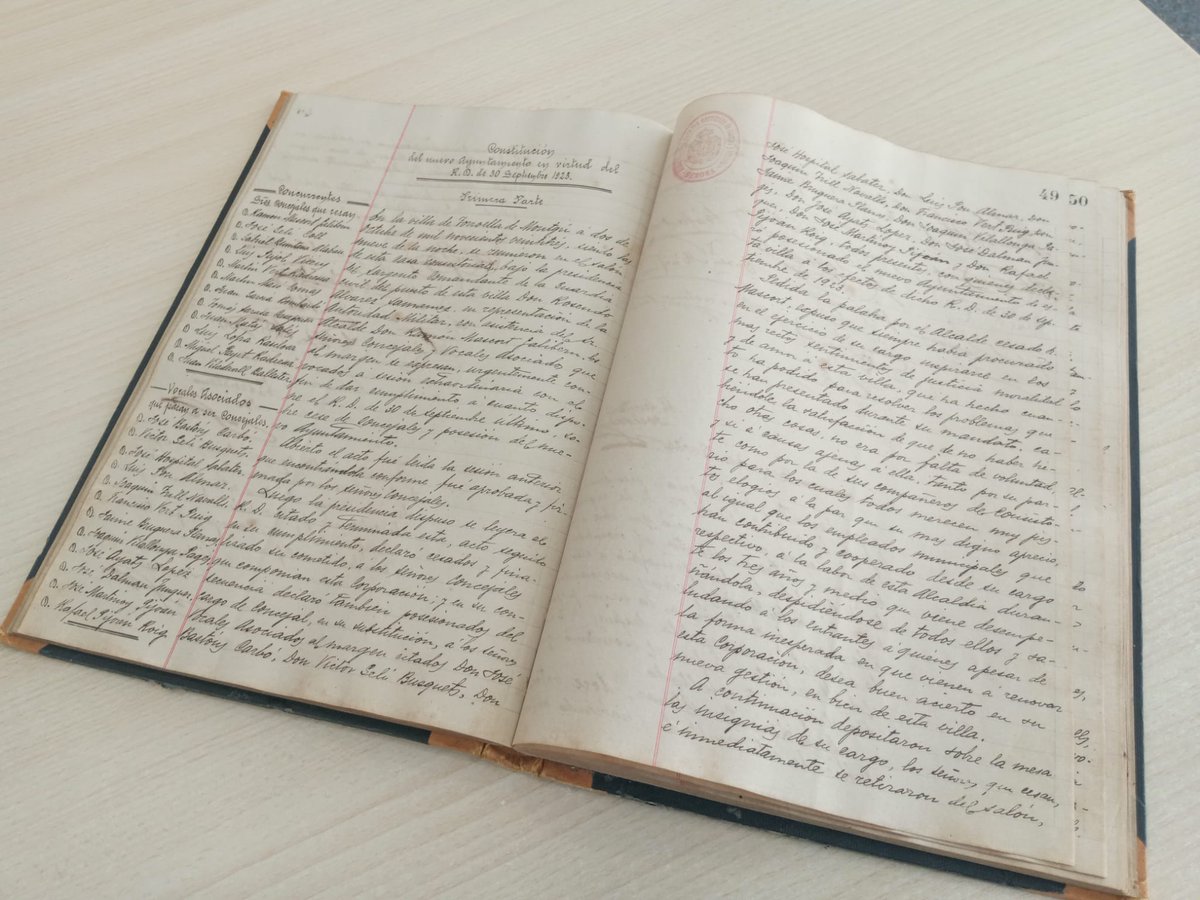 Constitución
del nuevo Ayuntamiento en virtud del
R. D. de 30 Septiembre 1923.
Primera Parte
Concurrentes
Sres Concejales que cesan
D. Ramon Mascort
D. José
D. Gabriel
D. Luis
D. Martin
D. Martin
D. Juan
D. Tomás
D. Juan
D. Luis
D. Miguel
D. Juan Ballester
Vocales Asociados
que pasan a ser Concejales
D. José Bastons Carbó,
D. Victor Geli Busquets,
D. José Hospital Sabater,
D. Luis Pon Almar,
D. Joaquin Navalls,
D. Francisco Vert Puig
D. Jaume Bruguera Planas
D. Joaquin Pagés
D. José Ayats Lopez
D. José Dalmau Junquer
D. José Martinoy Pijoan
D. Rafael Pijoan Roig
En la villa de Torroella de Montgri a dos de
Octubre de mil novecientos veintitres, siendo las
nueve de la noche, se reunieron en el salón
de esta casa Consistorial, bajo la presidencia
del Sargento Comandante de la Guardia
civil del puesto de esta villa Don Rosendo
Alvarez en representación de la
Autoridad Militar, con asistencia del Sr.
Alcalde Don Ramon Mascort
Señores Concejales y Vocales Asociados que
al margen se expresan, urgentemente con-
vocados a sesión extraordinaria con el
fin de dar cumplimiento a cuanto dispo-
ne el R. D. de 30 de septiembre último, so-
bre cese de Concejales y posesión del nue-
vo Ayuntamiento.
Abierto el acto fué leida la sesión anterior,
que encontrándola conforme fué aprobada y fir-
mada por los señores Concejales.
Luego la presidencia dispuso se leyera el
R. D. citado y terminada este, acto seguido
en su cumplimiento, declaró cesados y fina-
lizado su cometido, a los señores Concejales
que componian esta Corporación; y en su con-
secuencia declaró también posesionados del
cargo de Concejal, en su substitución, a los señores
Vocales Asociados al margen citados Don José
Bastons Carbó, Don Victor Geli Busquets, Don
49 50
José Hospital Sabater, Don Luis Pon Almar, Don
Joaquin Navalls, Don Francisco Vert Puig, Don
Jaume Bruguera Planas, Don Joaquin Pa-
ges, Don José Ayats Lopez, Don José Dalmau Jun-
quer, Don José Martinoy Pijoan y Don Rafael
Pijoan Roig, todos presentes, con quienes decla-
ró posesionado el nuevo Ayuntamiento de es-
ta villa a los efectos de dicho R. D. de 30 de Sep-
tiembre de 1923.
Pedida la palabra por el Alcalde cesado D.
Mascort, expuso que siempre habia procurado
en el ejercicio de su cargo inspirarse en los
mas rectos sentimientos de justicia moralidad
y de amor a esta villa, y que ha hecho cuan-
to ha podido para resolver los problemas que
se han presentado durante su mandato, ca-
biéndole la satisfacción de que de no haber he-
cho otras cosas, no era por falta de voluntad,
y si a causas apenas a ella, tanto por su par-
te como por la de sus compañeros de Consisto-
rio para los cuales todos merecen muy jus-
tos elogios a la par que su mas digno aprecio,
al igual que los empleados municipales que
han contribuido y cooperado desde su cargo
respectivo, a la labor de esta Alcaldia duran-
te los tres años y medio que viene desempe-
ñándola, despidiéndose de todos ellos y sa-
ludando a los entrantes a quienes apesar de
la forma inesperada en que vienen a renovar
esta Corporación, desea buen acierto en su
nueva gestión, en bien de esta villa.
A continuación depositaron sobre la mesa
las insignias de su cargo, los señores que cesan,
é inmediatamente se retiraron del salón,